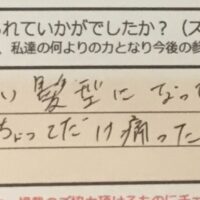 られていかがでしたか？（ス
、私達の何よりの力となり今後の参
い髪型になっ
ちょってだけ痛った